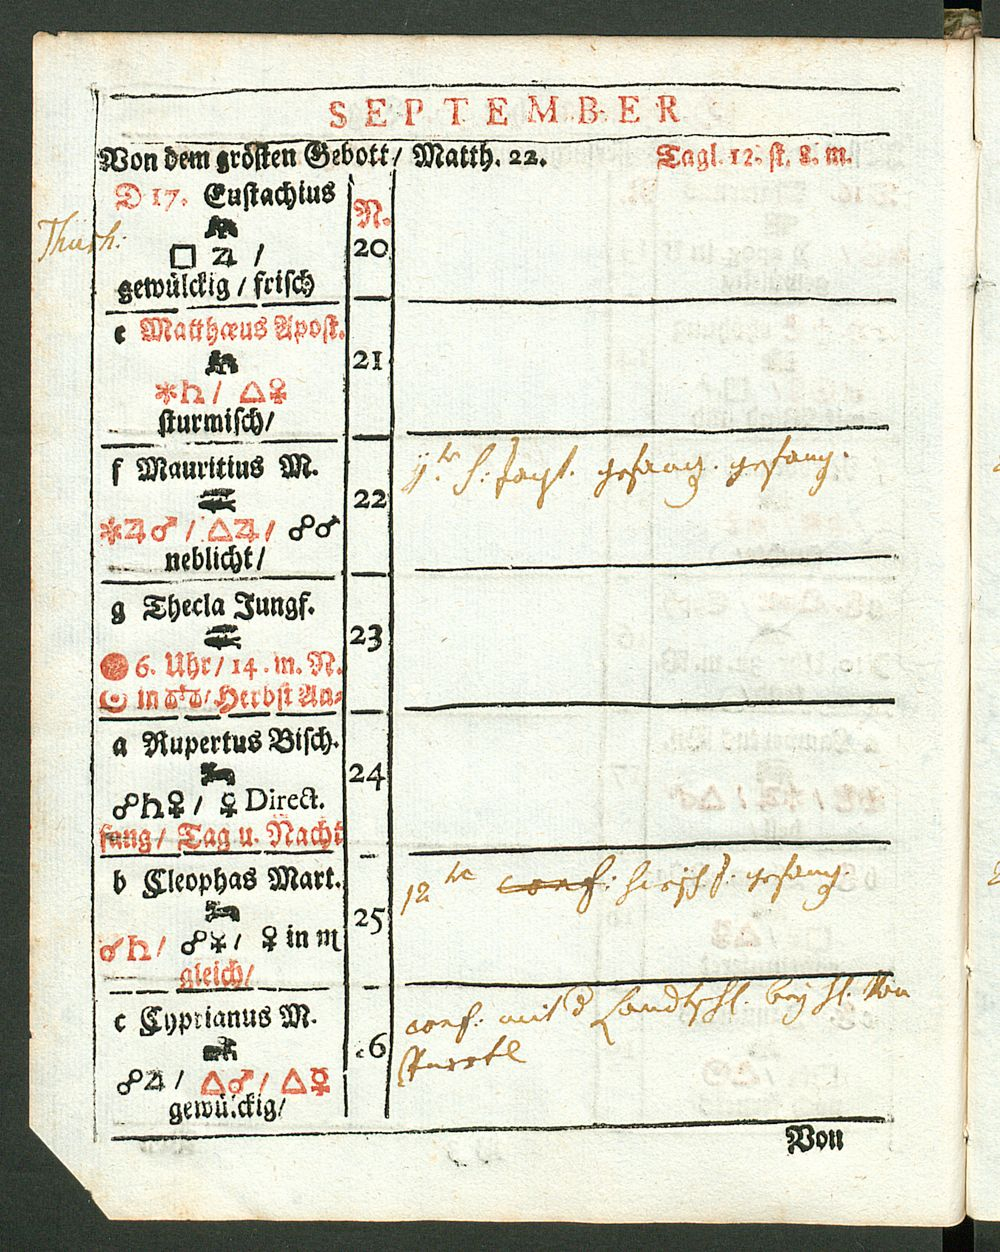 SEPTEMBER
Von dem grösten Gebott / Matth. 22. Tagl. 12. st. 8. m.
D 17. Eustachius
N.
20
□ ♃ /
gewülckig / frisch
e Matthæus Apost.
21
✶♄ / △♀
sturmisch /
f Mauritius M.
22
gesang. gesang.
✶♃♂ / △♃ / ☍♂
neblicht /
g Thecla Jungf.
23
6. Uhr / 14. m. N.
☉ in ♎ / Herbst An-
a Rupertus Bisch.
24
☍♄♀ / ♀ Direct.
fang / Tag u. Nacht
b Cleophas Mart.
12te conf:
25
☌♄ / ☍☿ / ♀ in ♏
gleich /
c Cyprianus M.
conf. mit
26
☍♃ / △♂ / △☿
gewülckig /
Von